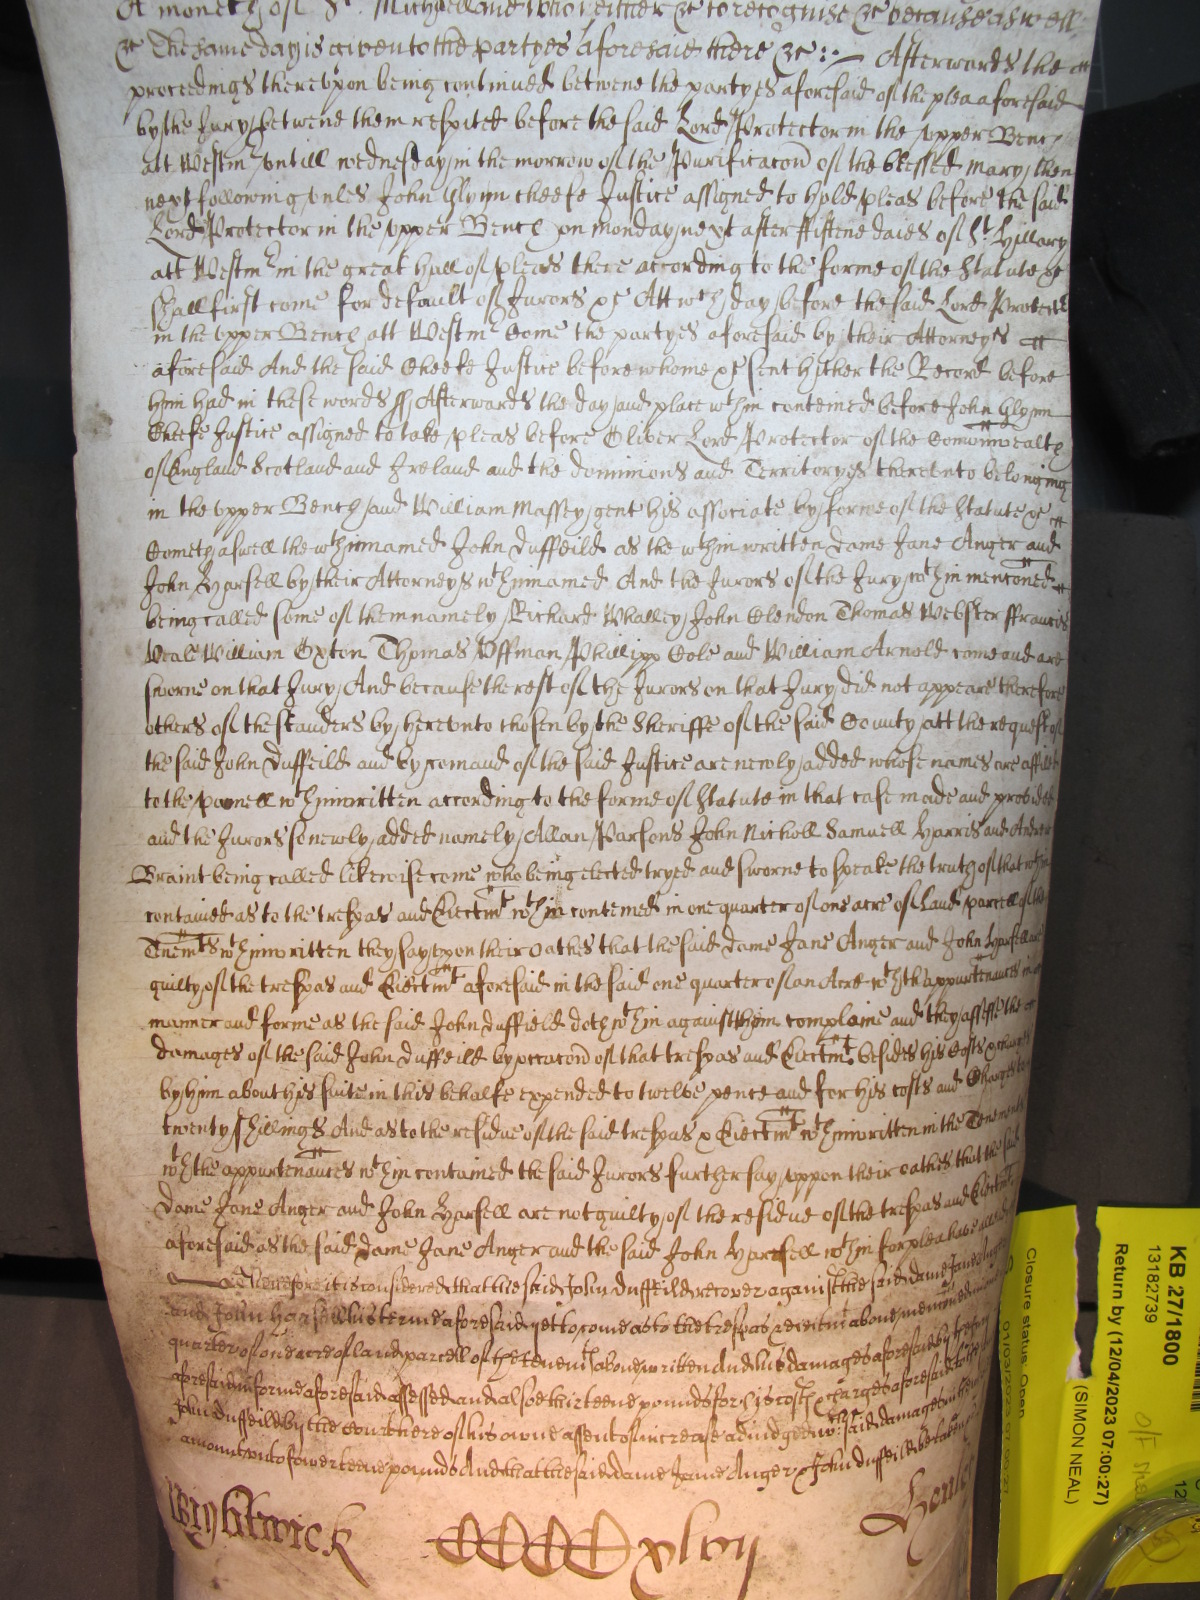 A moneth of St. Michaell who neither &c to recognise &c because aswell
&c The same day is given to the partyes aforesaid there &c :: Afterwards the
proceedings thereupon being continued betwene the partyes aforesaid of the plea aforesaid
by the Jury betwene them respited before the said Lord Protector in the upper Bench
att Westmr untill wednesday in the morrow of the Purificacon of the blessed Mary then
next following unles John Glynn cheefe Justice assigned to hold pleas before the said
Lord Protector in the upper Bench on monday next after fiftene daies of St Hillary
att Westmr in the great hall of pleas there according to the forme of the Statute &c
shall first come for default of Jurors &c Att wch day before the said Lord Protector
in the upper Bench att Westmr Come the partyes aforesaid by their Attorneys
aforesaid And the said Cheefe Justice before whome &c sent hither the Record before
him had in these words ss Afterwards the day and place wthin conteined before John Glynn
Cheefe Justice assigned to take pleas before Oliver Lord Protector of the Comonwealth
of England Scotland and Ireland and the dominions and Territoryes thereunto belonging
in the upper Bench and William Massey gent his associate by forme of the Statute &c
Cometh aswell the wthinnamed John Duffeild as the wthin written Dame Jane Anger and
John Harsell by their Attorneys wthinnamed And the Jurors of the Jury wthin mentioned
being called some of them namely Richard Whalley John Clendon Thomas Webster ffrancis
Veale William Oxton Thomas Uffman Phillipp Cole and William Arnold come and are
sworne on that Jury And because the rest of the Jurors on that Jury did not appeare therefore
others of the standers by hereunto chosen by the Sheriffe of the said County att the request of
the said John Duffeild and by comand of the said Justice are newly added whose names are affiled
to the pannell wthinwritten according to the forme of Statute in that case made and provided
and the Jurors so newly added namely Allan Parsons John Nicholl Samuell Harris and Andrew
Braint being called likewise come who being elected tryed and sworne to speake the truth of that wthin
contained as to the trespas and Eiectmt wthin conteined in one quarter of one acre of land parcell of the
Tenemts wthinwritten they say upon their oathes that the said Dame Jane Anger and John Harsell are
guilty of the trespas and Eiectmt aforesaid in the said one quarter of an Acre wth the appurtenances in
manner and forme as the said John Duffield doth wthin against them complaine and they assesse the
damages of the said John Duffeild by occacon of that trespas and Eiectmt besides his Costs & charges
by him about his suite in this behalfe expended to twelve pence and for his costs and Charges to
twenty shillings And as to the residue of the said trespas & Eiectmt wthinwritten in the Tenements
wth the appurtenances wthin contained the said Jurors further say uppon their oathes that the said
Dame Jane Anger and John Harsell are not guilty of the residue of the trespas and Eiectmt
aforesaid as the said Dame Jane Anger and the said John Harsell wthin for plea have
Therefore it is considered that the said John Duffeild recover against the said Dame Jane Anger
and John Harsell his terme aforesaid yet to come as to the trespas & eiectmt above mencioned in one
quarter of one acre of land parcell of the tenemts above written And his damages aforesaid by the Jury
aforesaid in forme aforesaid assessed and alsoe thirteene pounds for his costs & charges aforesaid to the
John Duffeild by the Court here of his owne assent of increase adiudged wch said damages in the
amount unto fowerteene pounds And that the said Dame Jane Anger & John Duffeild be taken
Wightwick CCCCxlvij
KB 27/1800
13182739
Return by (12/04/2023 07:00:27)
(SIMON NEAL)
Closure status: Open
01/03/2023 07:00:27